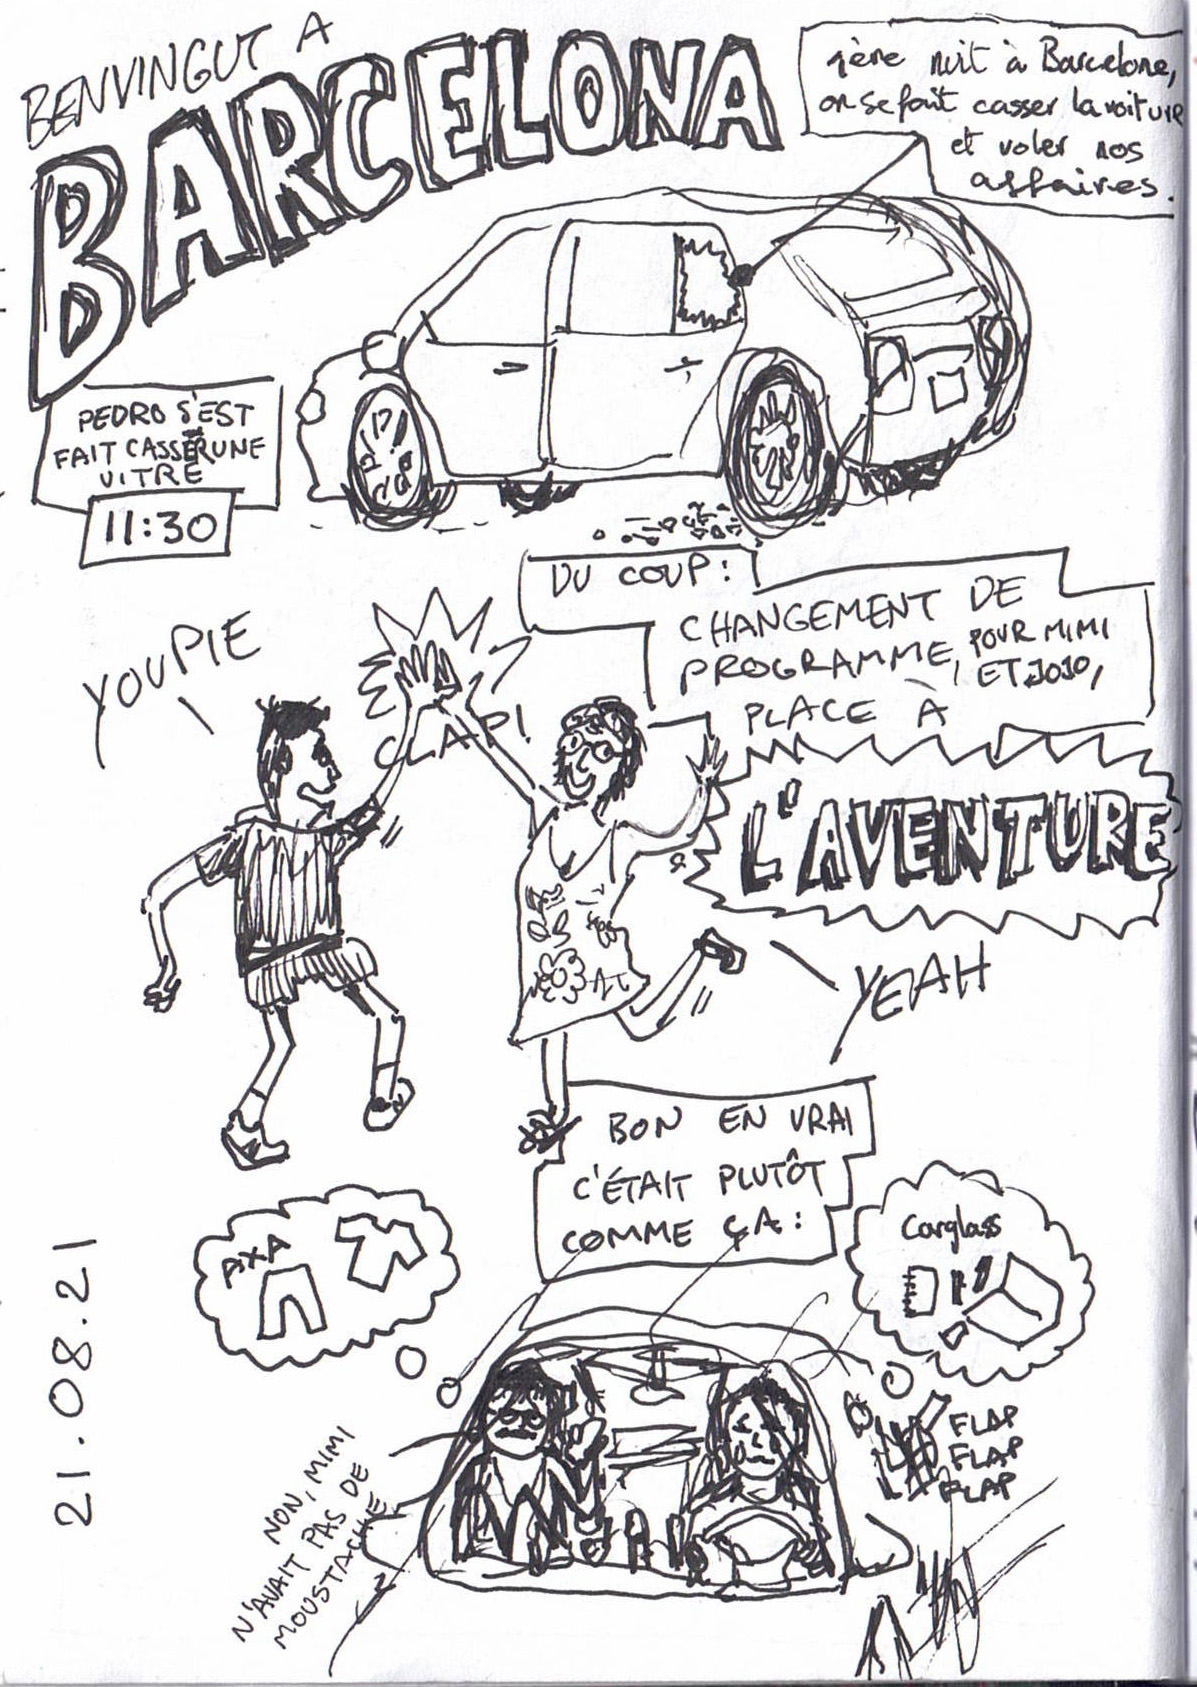 BENVINGUT A
BARCELONA
1ère nuit à Barcelone,
on se fait casser la voiture
et voler nos
affaires.
PEDRO S'EST
FAIT CASSER UNE
VITRE
11:30
DU COUP:
CHANGEMENT DE
PROGRAMME, POUR MIMI
ET JOJO,
PLACE À
L'AVENTURE
YOUPIE
CLAP!
YEAH
BON EN VRAI
C'ÉTAIT PLUTÔT
COMME ÇA:
PIXA
Carglass
FLAP
FLAP
FLAP
NON, MIMI
N'AVAIT PAS DE
MOUSTACHE
21.08.21